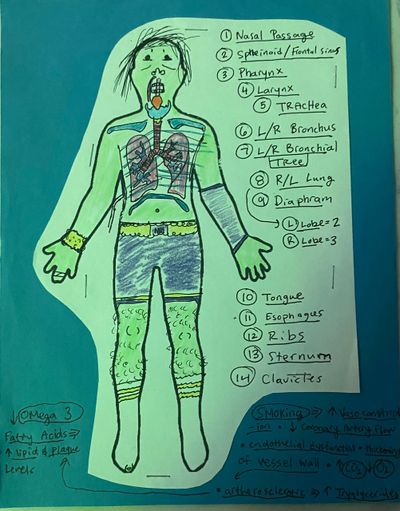 ① Nasal Passage
② Sphenoid/Frontal sinus
③ Pharynx
④ Larynx
⑤ TRACHea
⑥ L/R Bronchus
⑦ L/R Bronchial
TRee
⑧ R/L Lung
⑨ Diaphram
Ⓛ Lobe=2
Ⓡ Lobe=3
⑩ Tongue
⑪ Esophagus
⑫ Ribs
⑬ Sternum
⑭ Clavicles
↓ Omega 3
Fatty Acids ⇒
↑ lipid & Plaque
Levels
Smoking ⇒ ↑ Vasoconstrict
-ion • ↓ Coronary Artery Flow
• endothelial
of vessel wall • ↑ CO₂ ↓ O₂
⇒ ↑ Tryglycerides